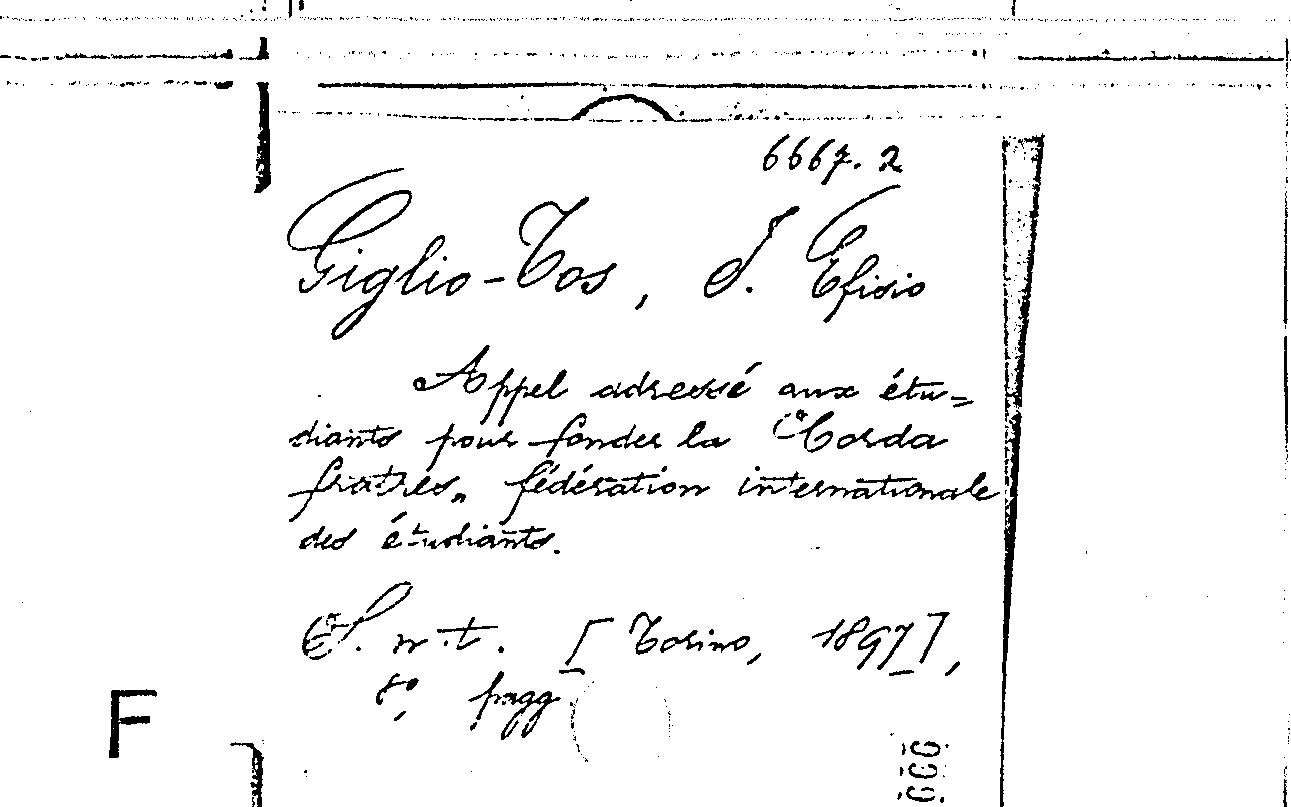 6667. 2
Giglio-Tos, J. Efisio
Appel adressé aux étu=
diants pour fonder la "Corda
fratres„ fédération internationale
des étudiants.
S. n. t. [Torino, 1897],
8°, pagg
F